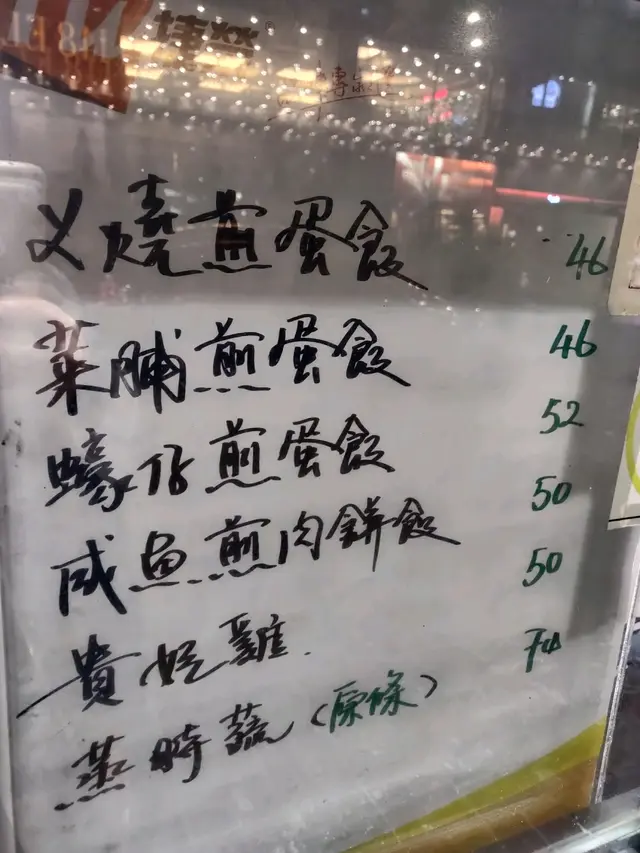 捷榮
叉燒煎蛋飯 46
菜脯煎蛋飯 46
蠔仔煎蛋飯 52
咸魚煎肉餅飯 50
貴妃雞 50
蒸時蔬(原條)